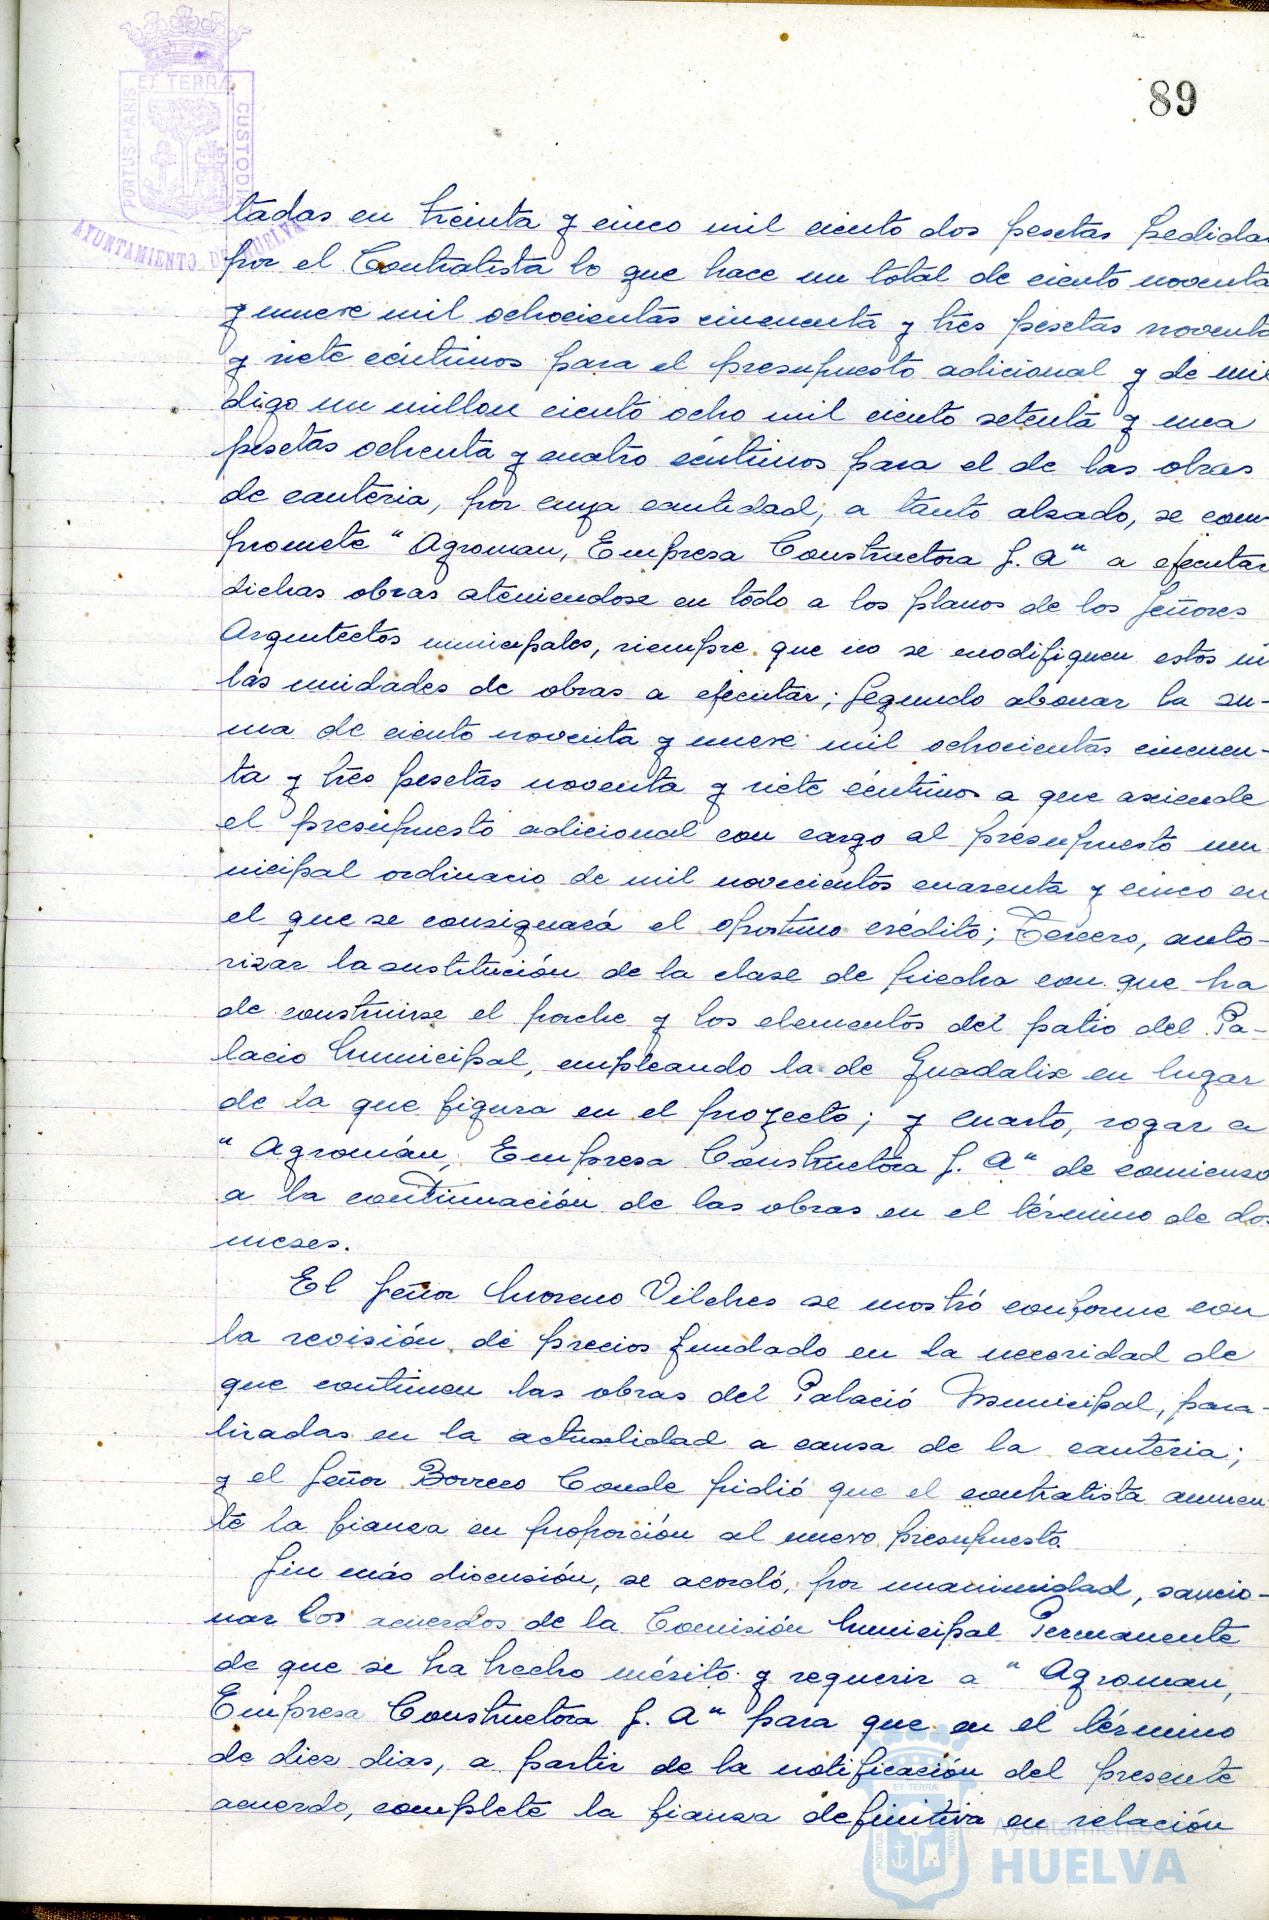 89
ET TERRÆ
PORTUS MARIS
CUSTODI
AYUNTAMIENTO DE HUELVA
tadas en treinta y cinco mil ciento dos pesetas pedidas
por el Contratista lo que hace un total de ciento noventa
y nueve mil ochocientas cincuenta y tres pesetas noventa
y siete céntimos para el presupuesto adicional y de mil
digo un millon ciento ocho mil ciento setenta y una
pesetas ochenta y cuatro céntimos para el de las obras
de cantería, por cuya cantidad, a tanto alzado, se com-
promete "Agroman, Empresa Constructora S. A" a ejecutar
dichas obras ateniendose en todo a los planos de los Señores
Arquitectos municipales, siempre que no se modifiquen estos ni
las unidades de obras a ejecutar; Segundo abonar la su-
ma de ciento noventa y nueve mil ochocientas cincuen-
ta y tres pesetas noventa y siete céntimos a que asciende
el presupuesto adicional con cargo al presupuesto mu-
nicipal ordinario de mil novecientos cuarenta y cinco en
el que se consignará el oportuno crédito; Tercero, auto-
rizar la sustitución de la clase de piedra con que ha
de construirse el porche y los elementos del patio del Pa-
lacio Municipal, empleando la de Guadalix en lugar
de la que figura en el proyecto; y cuarto, rogar a
"Agromán, Empresa Constructora S. A" de comienzo
a la continuación de las obras en el término de dos
meses.
El Señor Moreno Vilches se mostró conforme con
la revisión de precios fundado en la necesidad de
que continuen las obras del Palació Municipal, para-
lizadas en la actualidad a causa de la cantéria;
y el Señor Borrero Conde pidió que el contratista aumen-
te la fianza en proporción al nuevo presupuesto.
Sin más discusión, se acordó, por unanimidad, sancio-
nar los acuerdos de la Comisión Municipal Permanente
de que se ha hecho mérito y requerir a "Agroman,
Empresa Constructora S. A" para que en el término
de diez dias, a partir de la notificación del presente
acuerdo, complete la fianza definitiva en relación
Ayuntamiento de
HUELVA